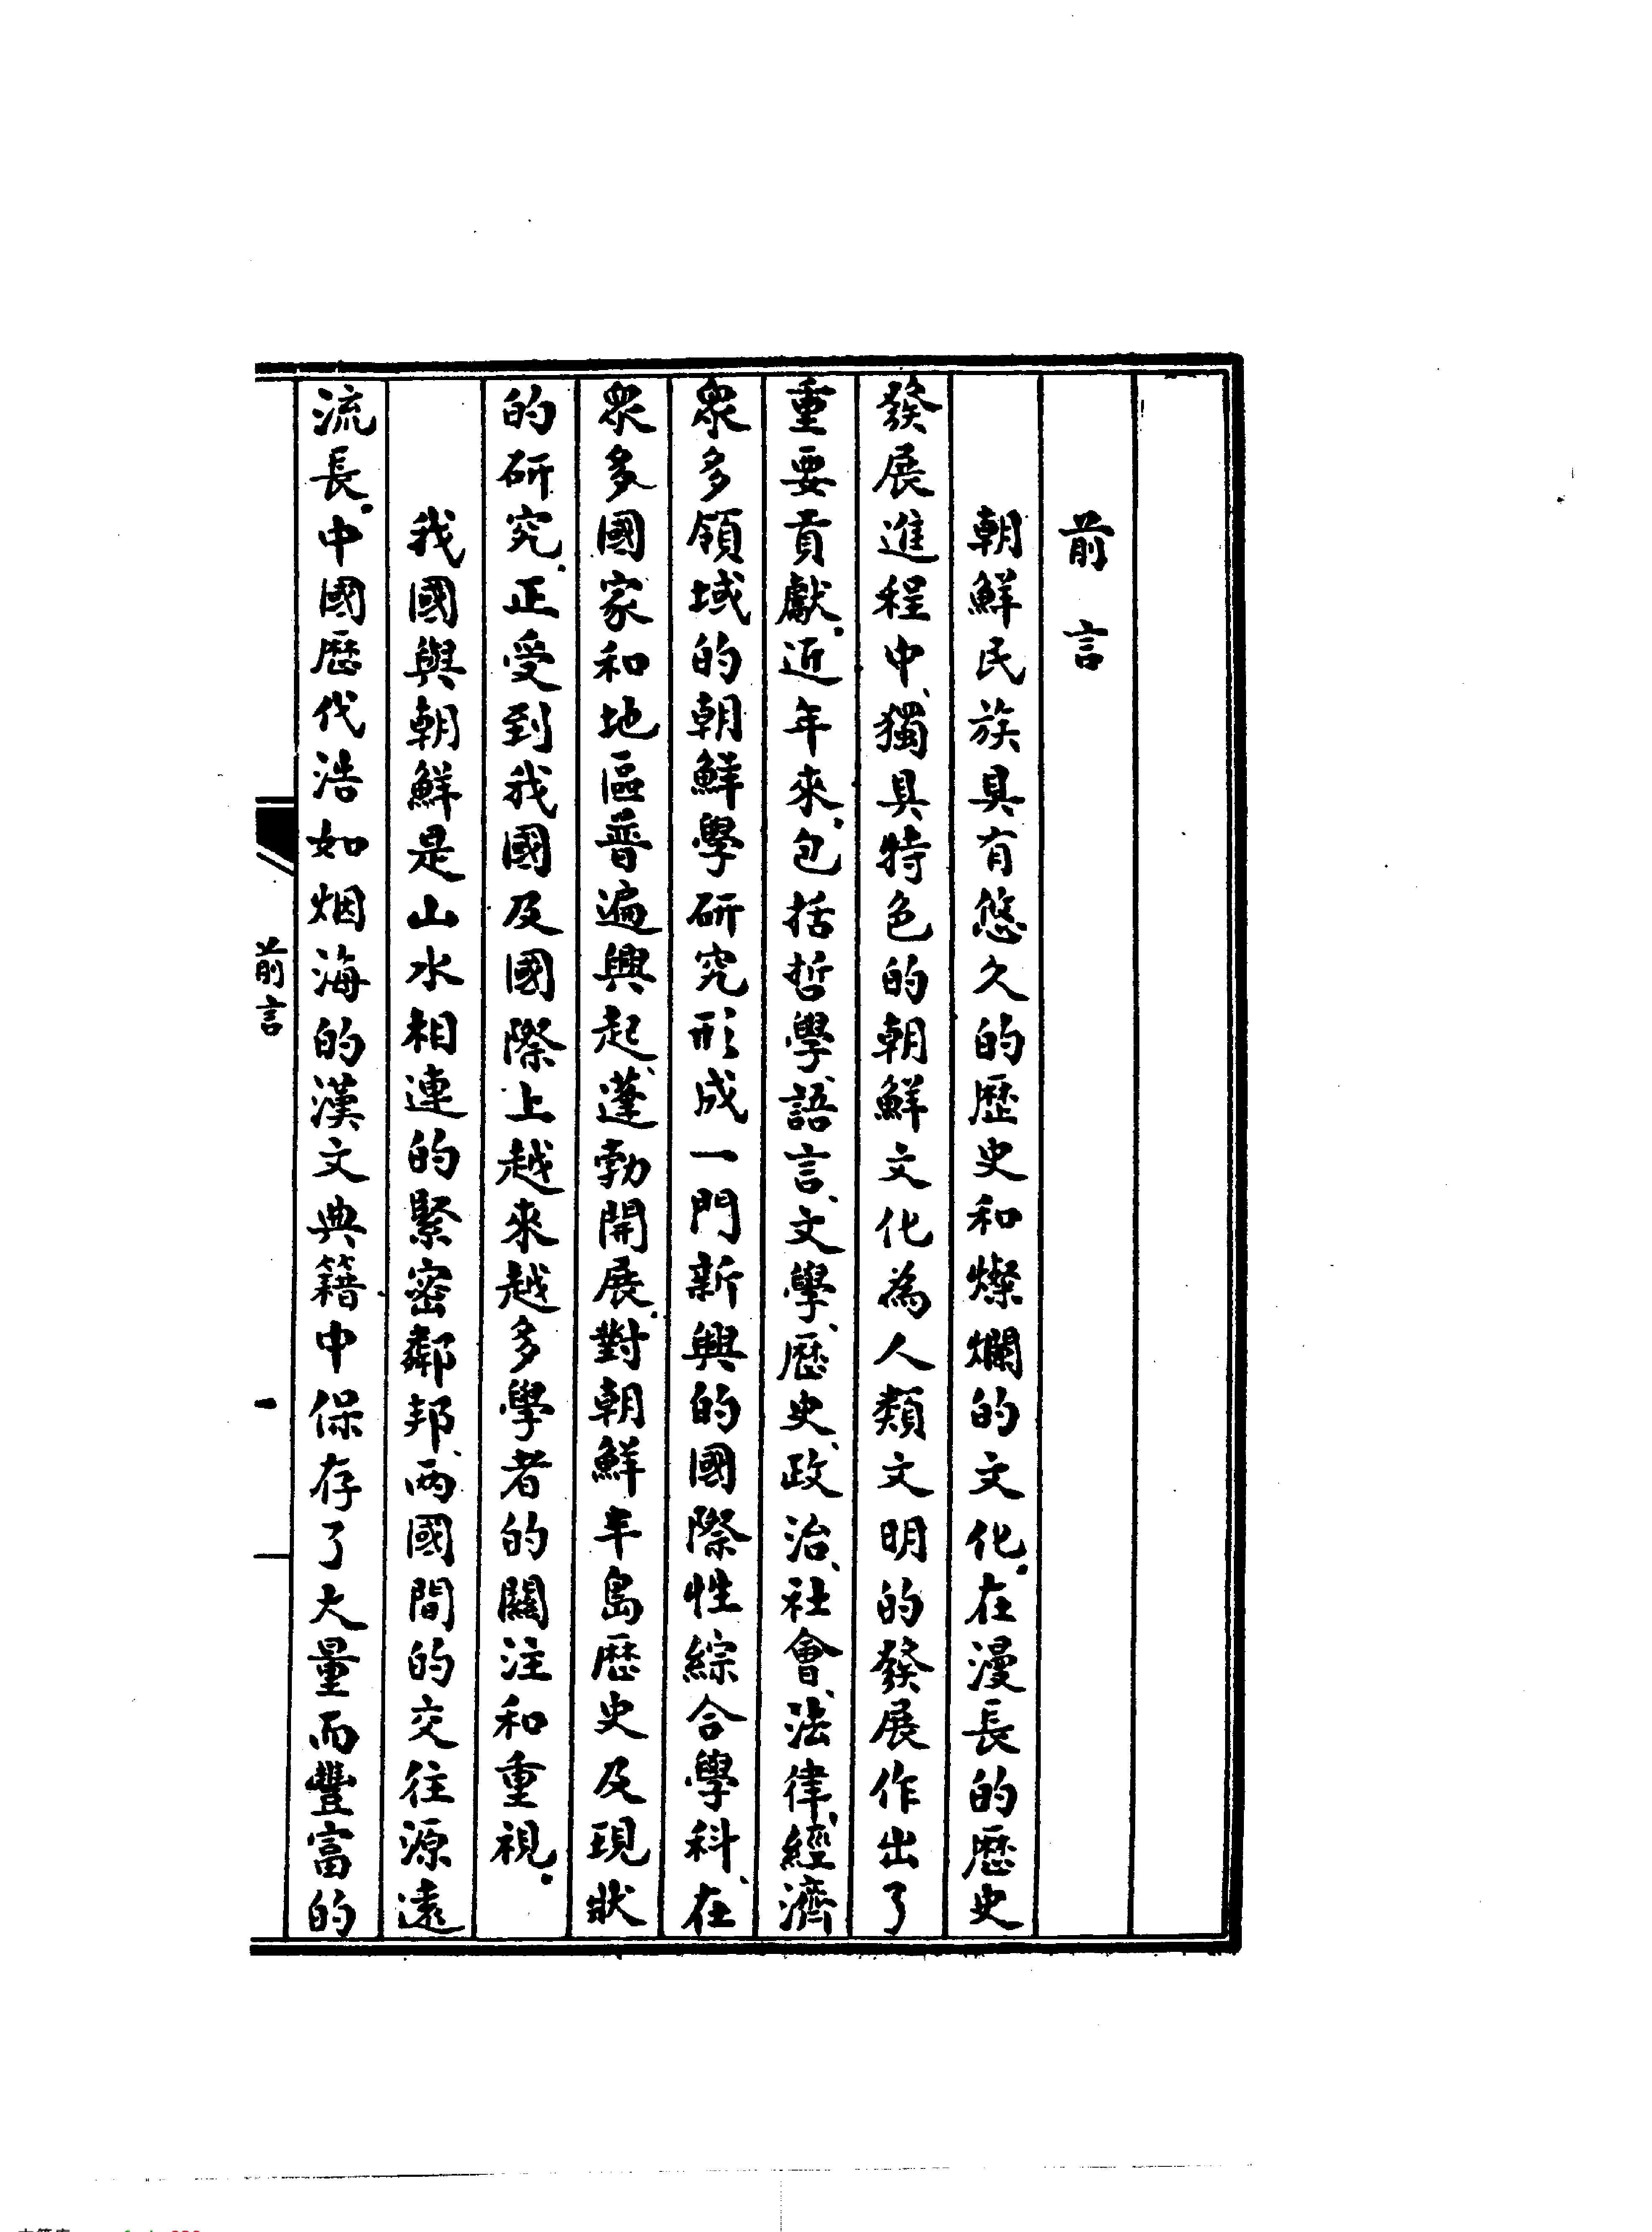 前言
朝鮮民族具有悠久的歷史和燦爛的文化.在漫長的歷史
發展進程中、獨具特色的朝鮮文化為人類文明的發展作出了
重要貢獻.近年來、包括哲學、語言、文學、歷史、政治、社會、法律、經濟
衆多領域的朝鮮學研究形成一門新興的國際性綜合學科、在
衆多國家和地區普遍興起、蓬勃開展.對朝鮮半島歷史及現狀
的研究、正受到我國及國際上越來越多學者的關注和重視.
我國與朝鮮是山水相連的緊密鄰邦、兩國間的交往源遠
流長.中國歷代浩如烟海的漢文典籍中保存了大量而豐富的
前言
一